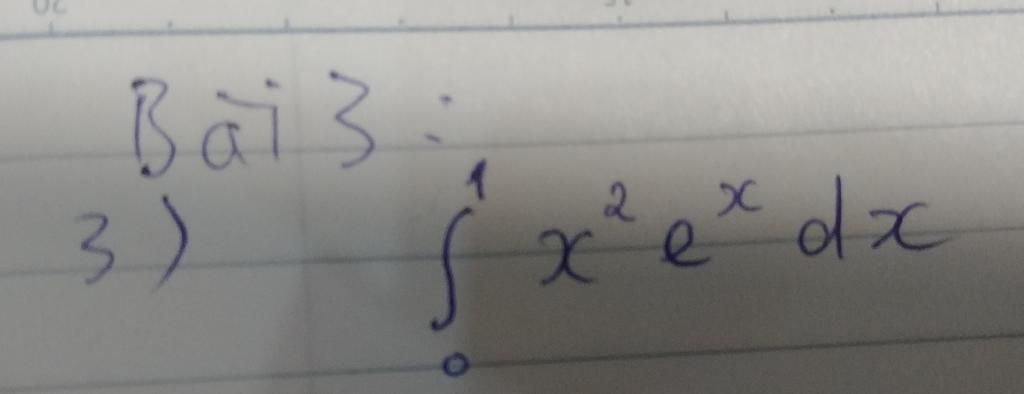 Bài 3:
3) ∫₀¹ x² eˣ dx